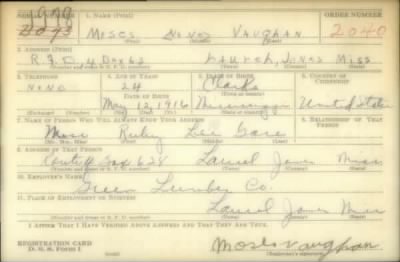 1. Name (Print)
ORDER NUMBER
Moses Vaughan
2040
2. Address (Print)
R.F.D. 4 Box 62 Laurel, Jones Miss
3. Telephone
4. Age in Years
5. Place of Birth
6. Country of Citizenship
None
24
Clarke
Date of Birth
May 12, 1916
Mississippi
United States
7. Name of Person Who Will Always Know Your Address
8. Relationship of That Person
Ruby Lee
9. Address of That Person
Route 4 Box 628 Laurel Jones Miss
10. Employer's Name
Green Lumber Co.
11. Place of Employment or Business
Laurel Jones Miss
I Affirm That I Have Verified Above Answers and That They Are True.
REGISTRATION CARD
D. S. S. Form 1
Moses Vaughan